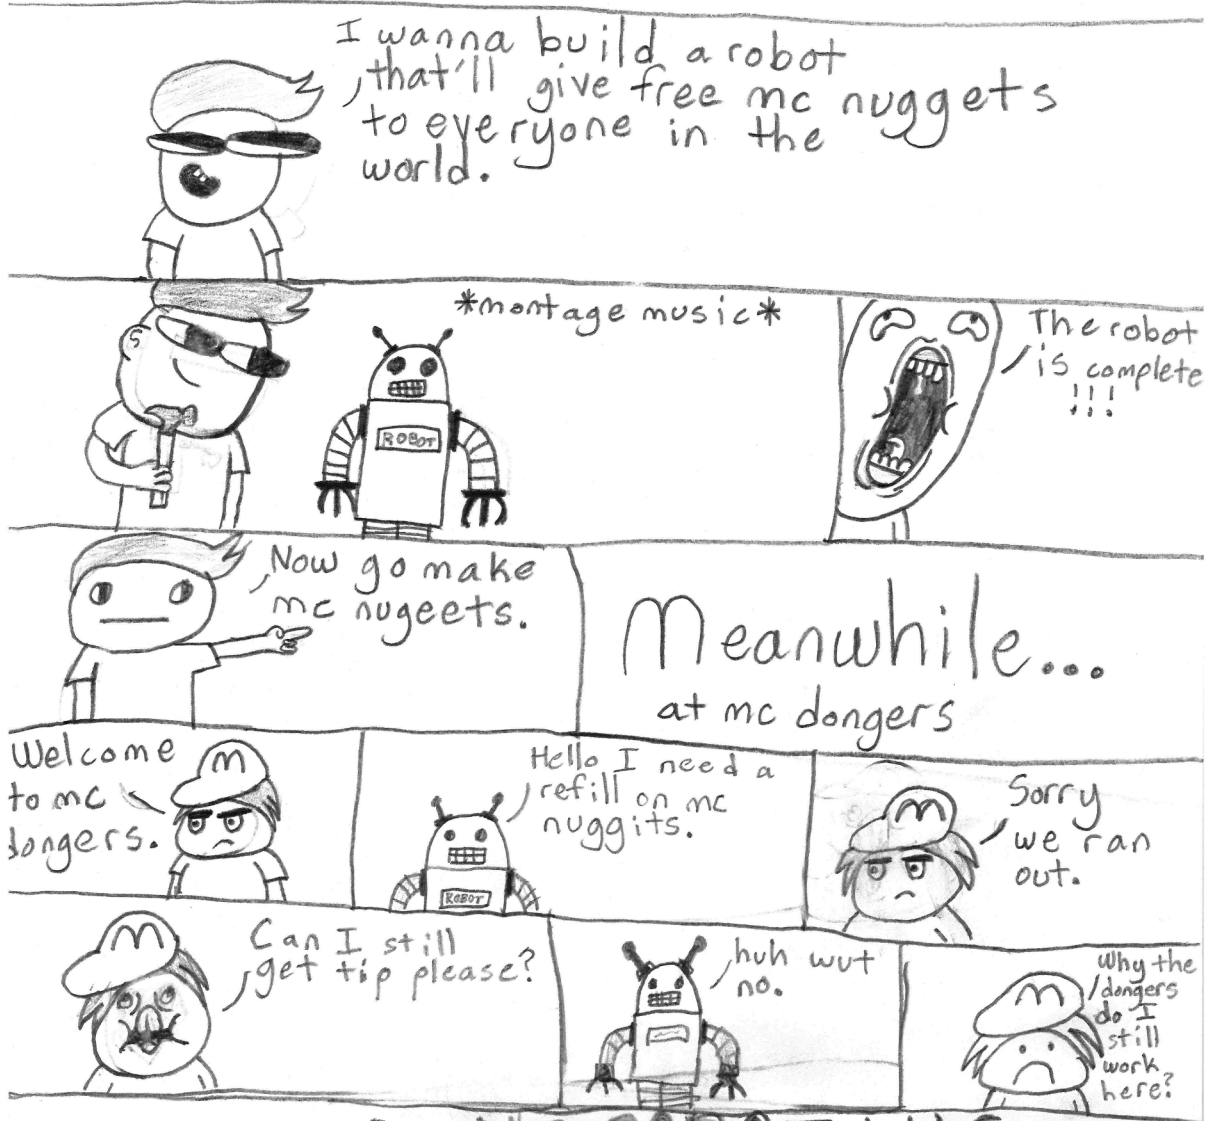 I wanna build a robot
that'll give free mc nuggets
to everyone in the
world.
*montage music*
ROBOT
The robot
is complete
!!!
Now go make
mc nugeets.
Meanwhile...
at mc dongers
Welcome
to mc
dongers.
M
Hello I need a
refill on mc
nuggits.
ROBOT
M
Sorry
we ran
out.
M
Can I still
get tip please?
huh wut
no.
M
Why the
dongers
do I
still
work
here?